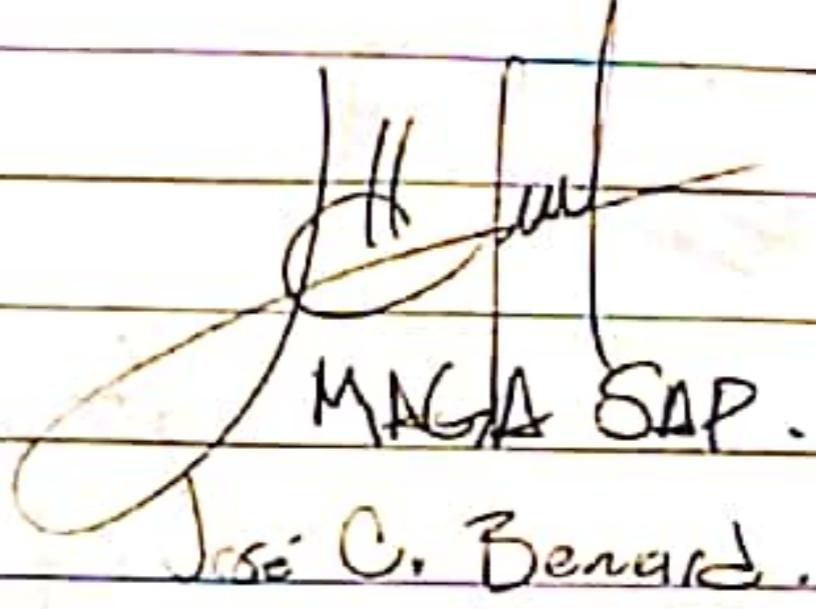 MAGA SAP.
José C. Benard.